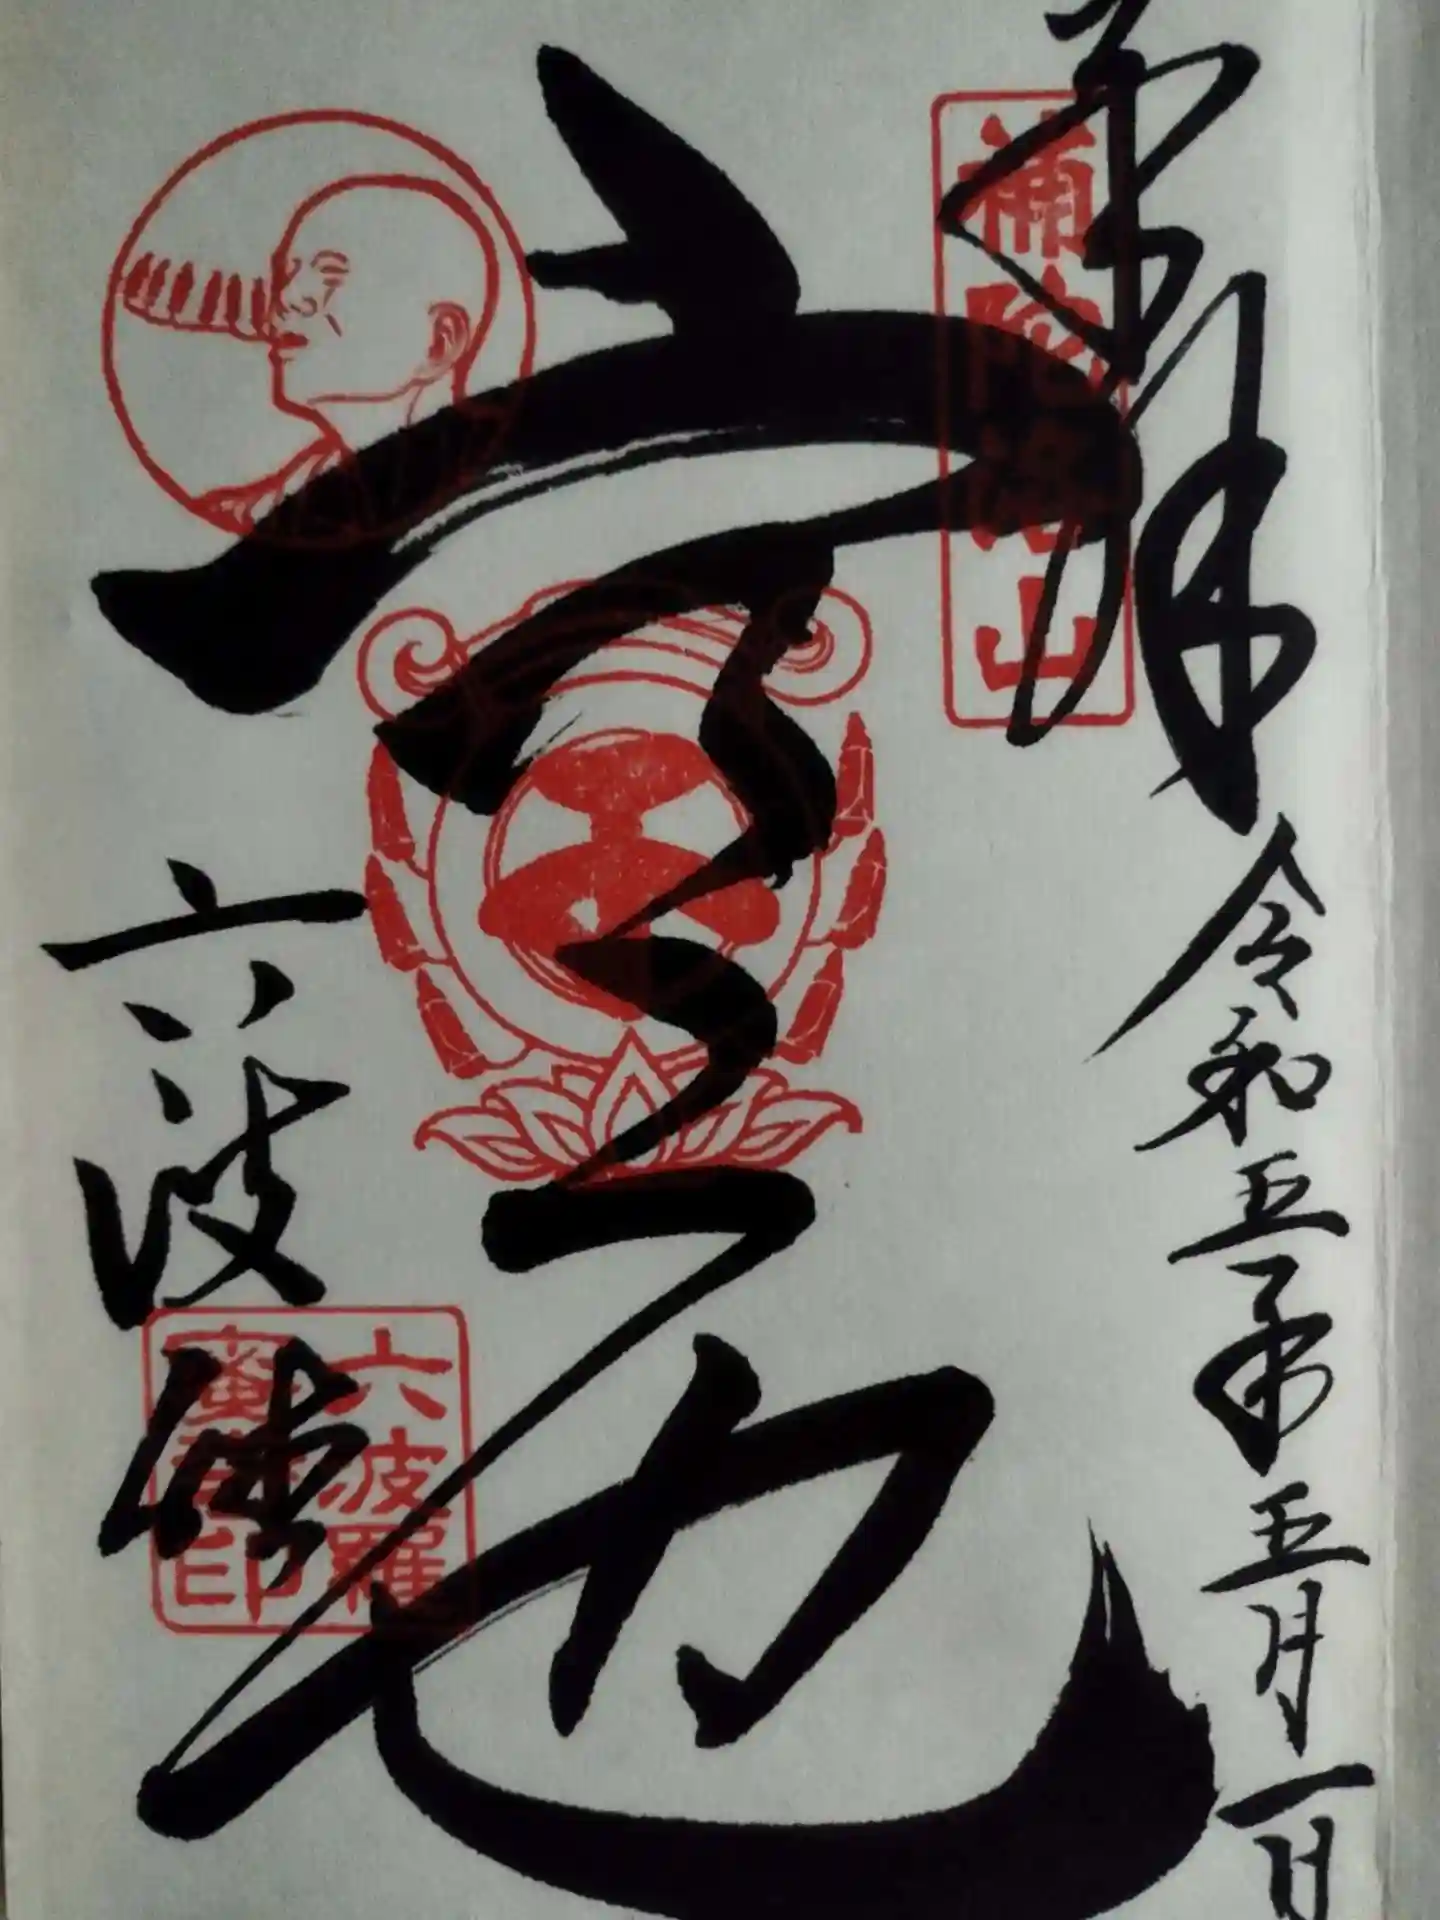 奉拝
令和五年五月一日
補陀洛山
空也
六波羅蜜寺印